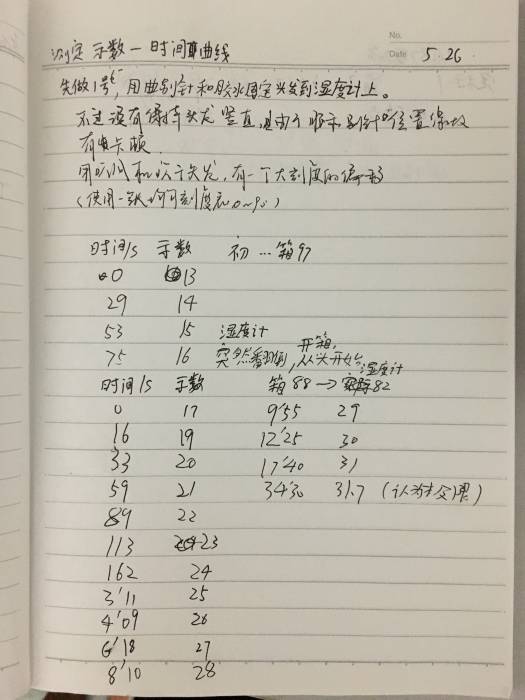 No.
Date 5.26
测定 示数-时间曲线
先做1号, 用曲别针和胶水固定头发到湿度计上。
不过没有保持头发竖直, 且由于
有些卡顿
头发, 有一个大刻度的偏移
(使用一张 刻度 0~90)
时间/s 示数 初...箱97
0 13
29 14
53 15 湿度计 开箱,
75 16 突然翻倒, 从头开始 湿度计
时间/s 示数 箱88→实际82
0 17 9'55 29
16 19 12'25 30
33 20 17'40 31
59 21 34'30 31.7 (认为
89 22
113 23
162 24
3'11 25
4'09 26
6'18 27
8'10 28